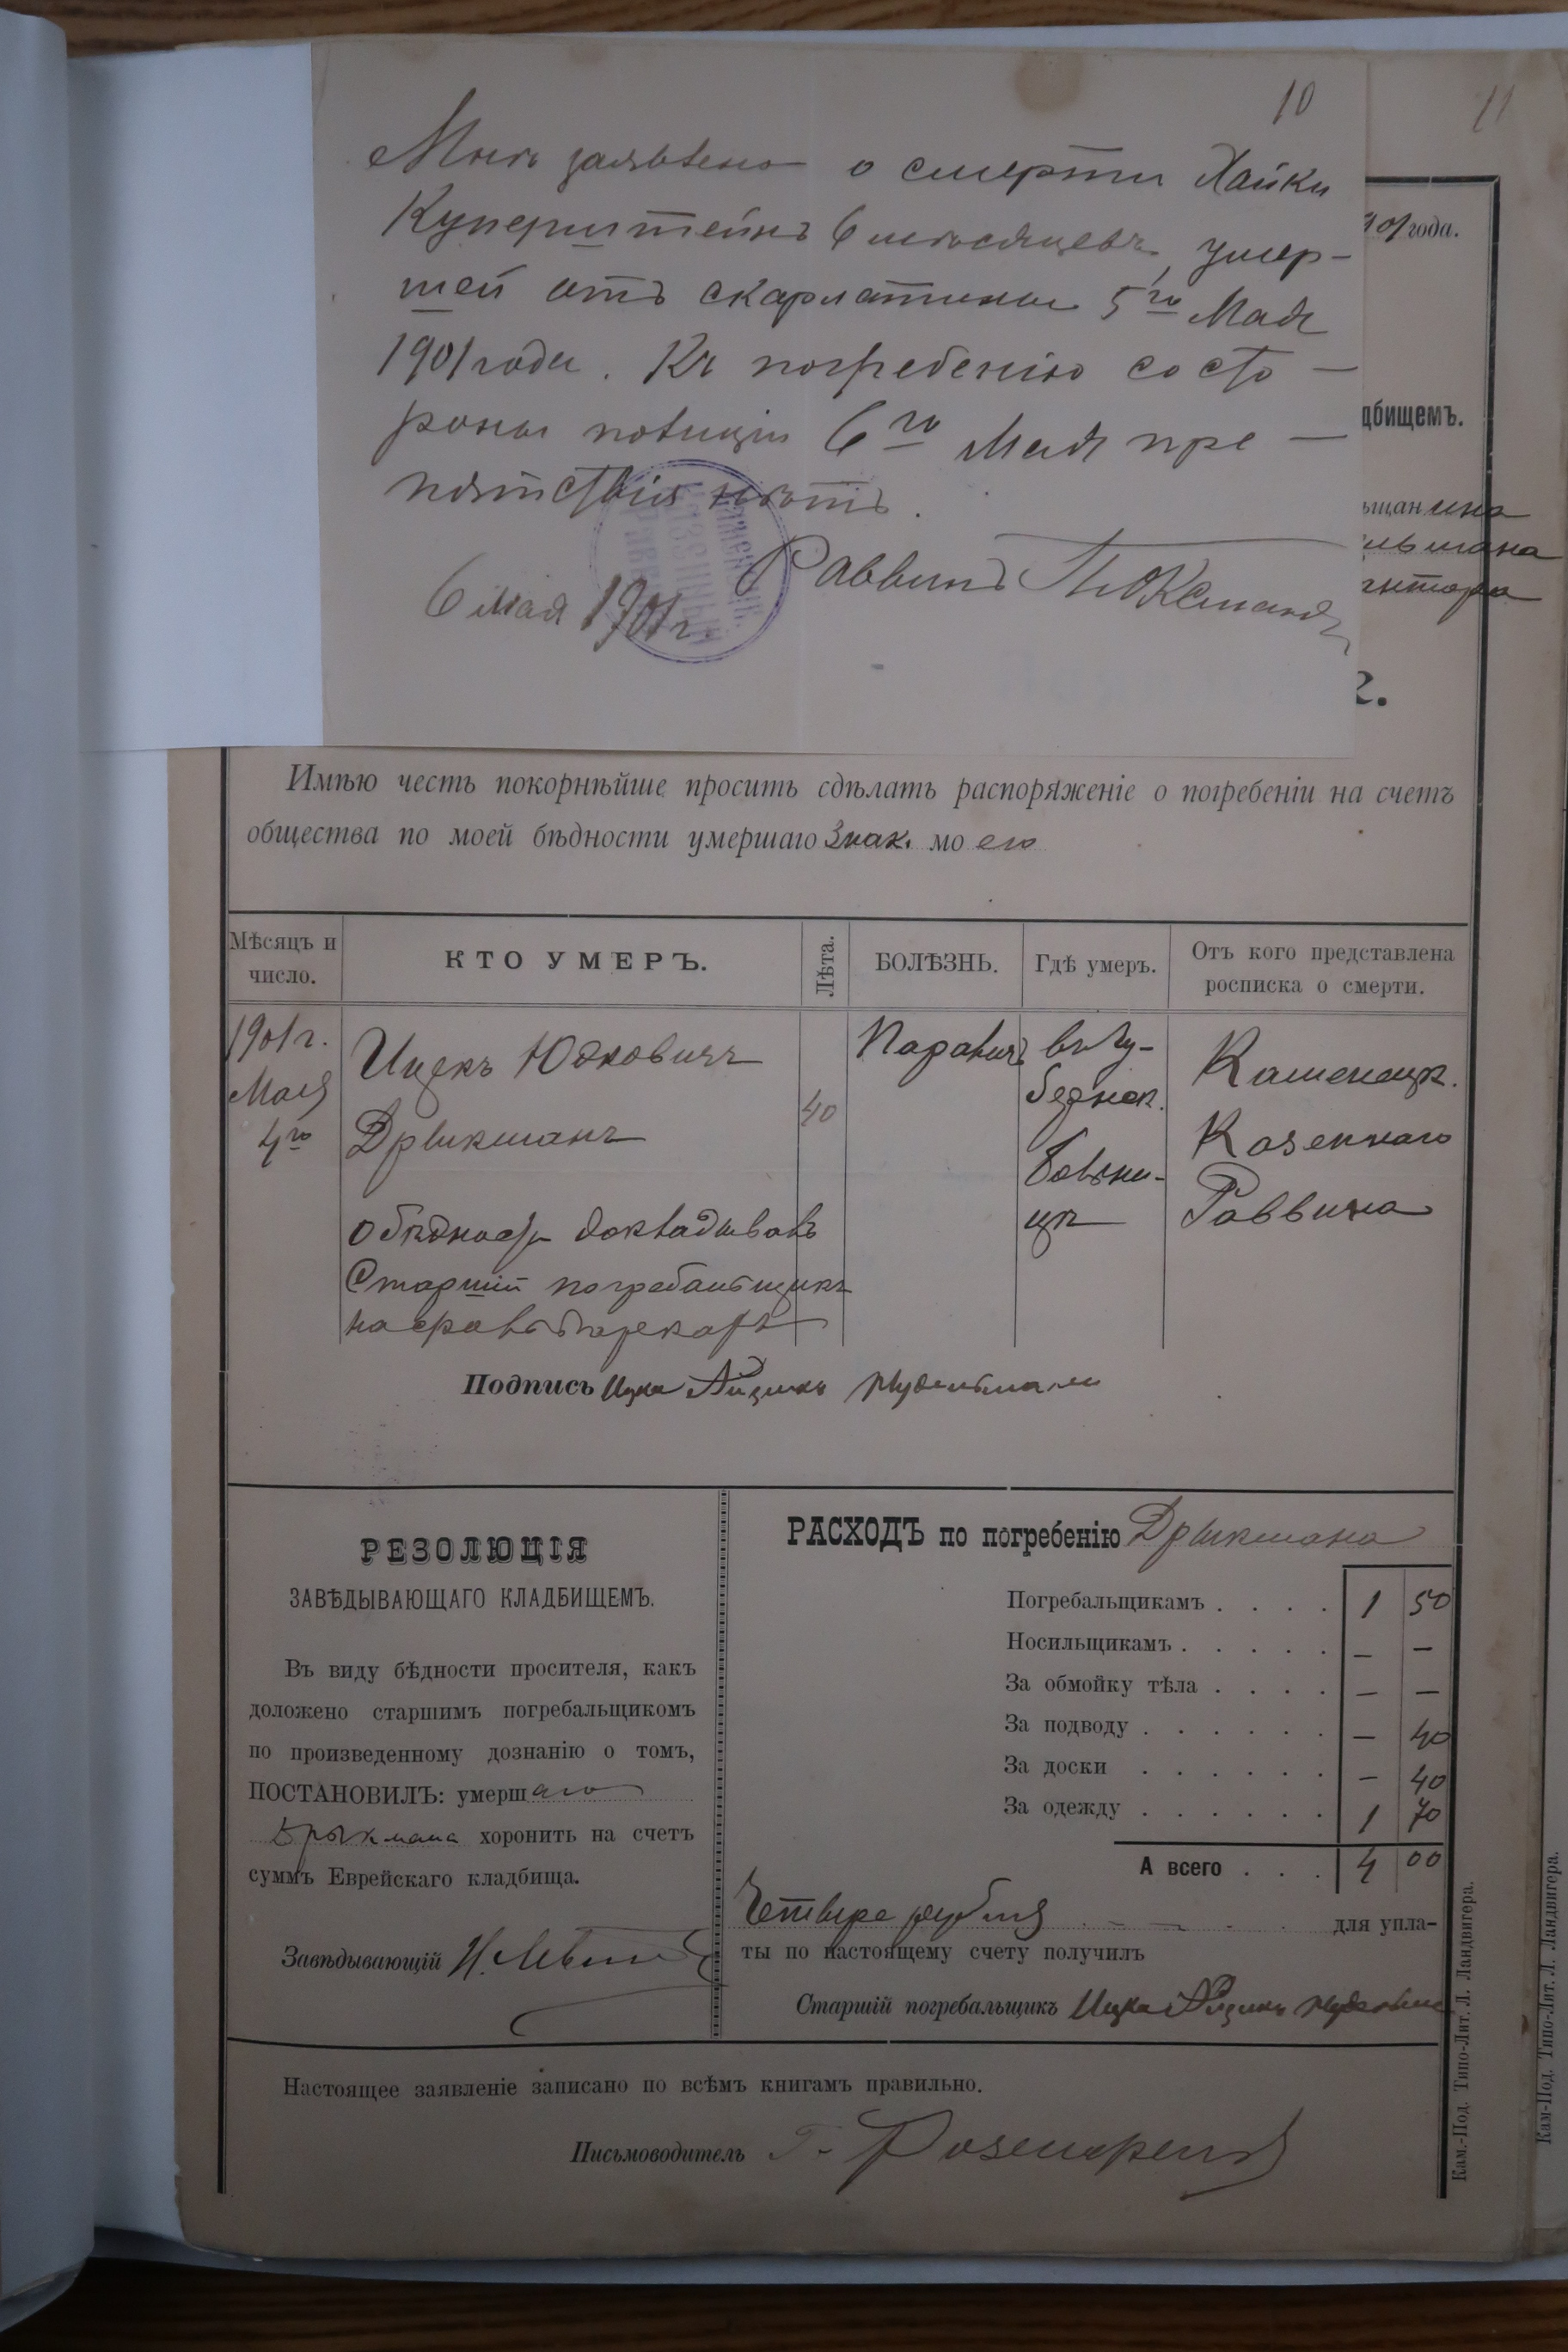 10
11
Мнѣ заявлено о смерти Хайки
Куперштейнъ 6 мѣсяцевъ, умер-
шей отъ скарлатины 5го Мая
1901 года. Къ погребенію со сто-
роны полиціи 6го Мая пре-
пятствія нѣтъ.
Раввинъ
6 мая 1901 г.
901 года.
дбищемъ.
ьщанина
ильмана
2.
Имѣю честь покорнѣйше просить сдѣлать распоряженіе о погребеніи на счетъ
общества по моей бѣдности умершаго Знак. мо его
Мѣсяцъ и число.
КТО УМЕРЪ.
Лѣта.
БОЛѢЗНЬ.
Гдѣ умеръ.
Отъ кого представлена росписка о смерти.
1901 г.
Мая
4го
Ицекъ Юдковичъ
Дрыкманъ
40
Параличъ
въ Гу-
бернск.
больни-
цѣ
Каменецк.
Казеннаго
Раввина
О бѣдности докладывалъ
Старшій погребальщикъ
Подпись Ицка Айзикъ Нудельман
РЕЗОЛЮЦІЯ
ЗАВѢДЫВАЮЩАГО КЛАДБИЩЕМЪ.
Въ виду бѣдности просителя, какъ
доложено старшимъ погребальщикомъ
по произведенному дознанію о томъ,
ПОСТАНОВИЛЪ: умершаго
Дрыкмана хоронить на счетъ
суммъ Еврейскаго кладбища.
Завѣдывающій
РАСХОДЪ по погребенію Дрыкмана
Погребальщикамъ . . . . 1 50
Носильщикамъ . . . . . — —
За обмойку тѣла . . . . — —
За подводу . . . . . . — 40
За доски . . . . . . — 40
За одежду . . . . . . 1 70
А всего . . . 4 00
Четыре рубля для упла-
ты по настоящему счету получилъ
Старшій погребальщикъ Ицка Айзикъ Нудельман
Настоящее заявленіе записано по всѣмъ книгамъ правильно.
Письмоводитель
Кам.-Под. Типо-Лит. Л. Ландвигера.
Кам-Под. Типо-Лит. Л. Ландвигера.